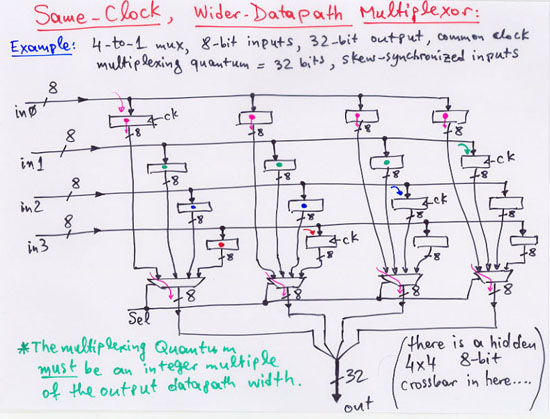 Same-Clock, Wider-Datapath Multiplexor:
Example: 4-to-1 mux, 8-bit inputs, 32-bit output, common clock
multiplexing quantum = 32 bits, skew-synchronized inputs
8
in0
ck
8
8
8
8
8
in1
ck
8
8
8
8
8
in2
ck
8
8
8
8
8
in3
ck
8
8
8
8
8
8
8
8
Sel
*The multiplexing Quantum
must be an integer multiple
of the output datapath width.
32
out
(there is a hidden
4x4 8-bit
crossbar in here....)